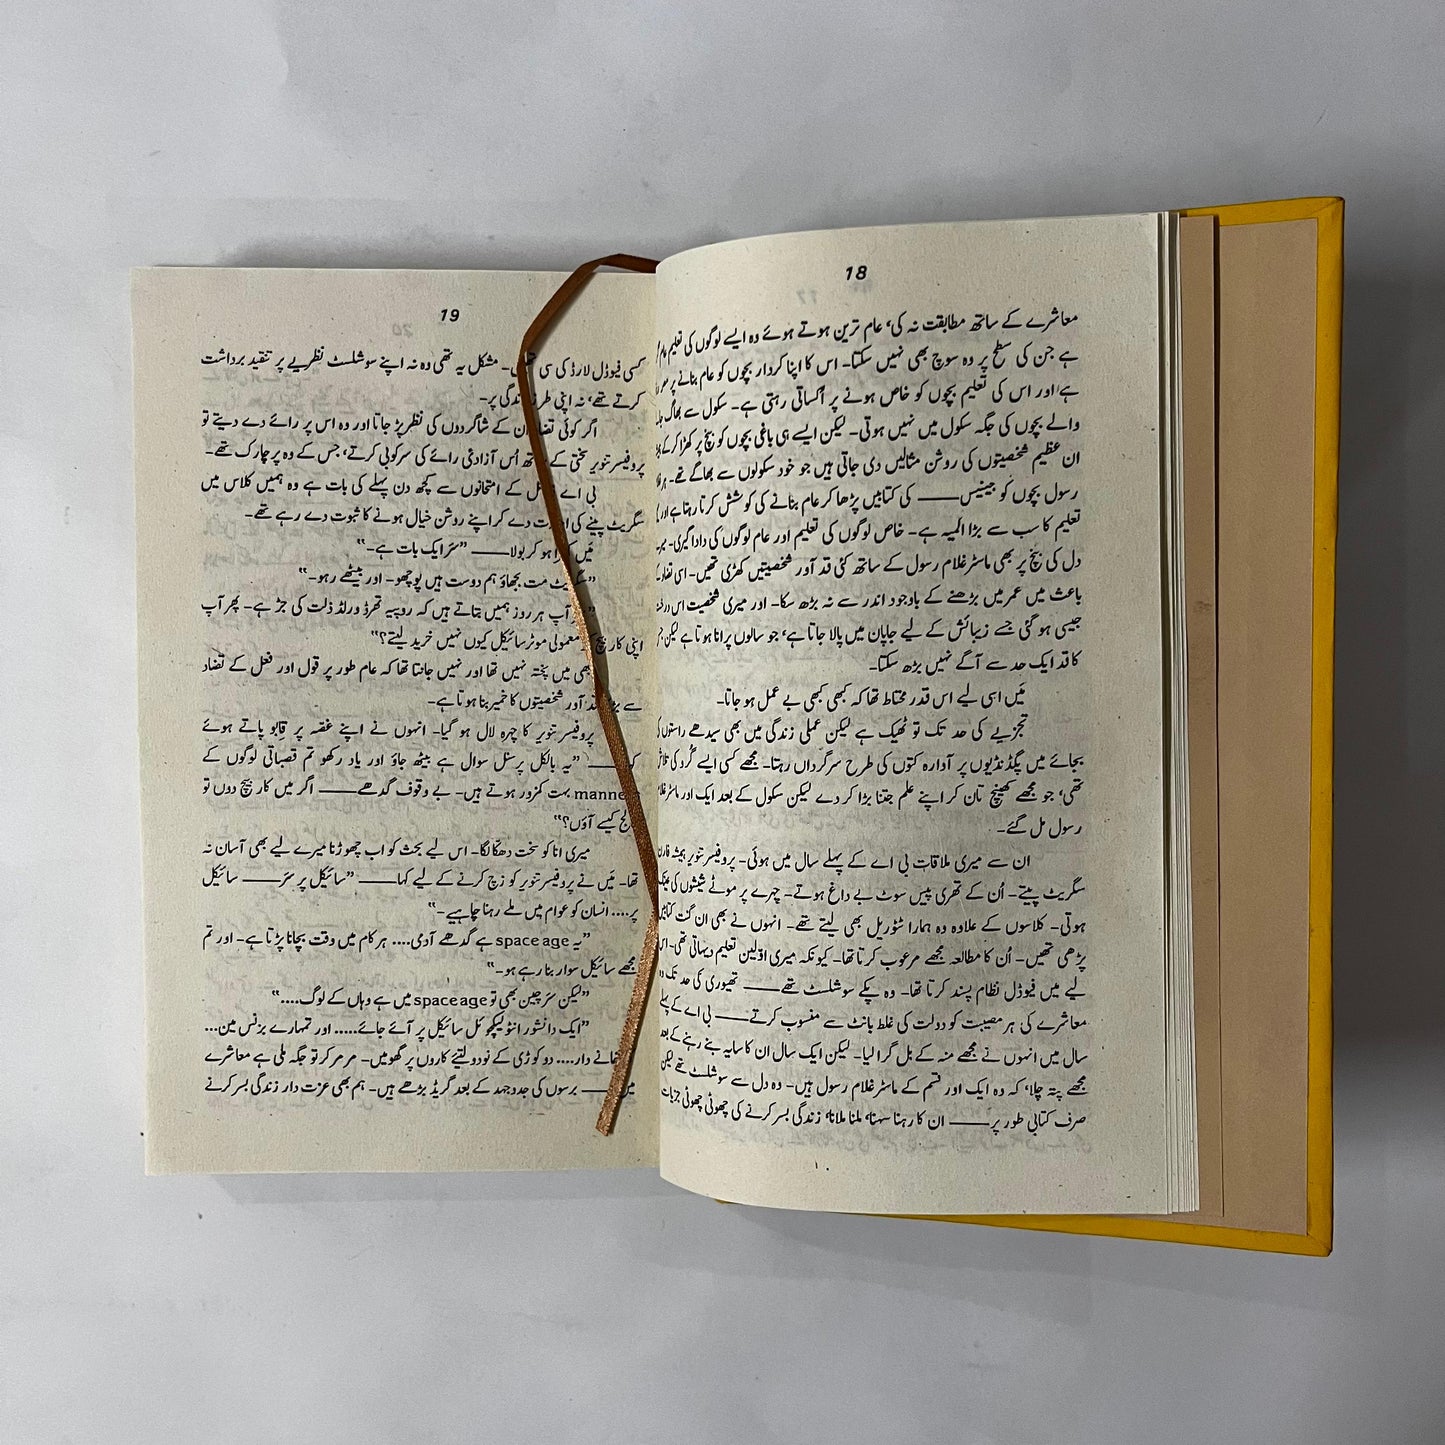 18
معاشرے کے ساتھ مطابقت نہ کی، عام ترین ہوتے ہوئے وہ ایسے لوگوں کی تعلیم عام
ہے جن کی سطح پر وہ سوچ بھی نہیں سکتا۔ اس کا اپنا کردار بچوں کو عام بنانے پر
ہے اور اس کی تعلیم بچوں کو خاص ہونے پر اُکساتی رہتی ہے۔ سکول سے بھاگ
والے بچوں کی جگہ سکول میں نہیں ہوتی۔ لیکن ایسے ہی باغی بچوں کو بنچ پر کھڑا کر کے
ان عظیم شخصیتوں کی روشن مثالیں دی جاتی ہیں جو خود سکولوں سے بھاگے تھے۔
رسول بچوں کو جینیس —— کی کتابیں پڑھا کر عام بنانے کی کوشش کرتا رہتا ہے اور
تعلیم کا سب سے بڑا المیہ ہے۔ خاص لوگوں کی تعلیم اور عام لوگوں کی دادا گیری۔
دل کی بنچ پر بھی ماسٹر غلام رسول کے ساتھ کئی قد آور شخصیتیں کھڑی تھیں۔ اسی تضاد
باعث میں عمر میں بڑھنے کے باوجود اندر سے نہ بڑھ سکا۔ اور میری شخصیت اس
جیسی ہو گئی جسے زیبائش کے لیے جاپان میں پالا جاتا ہے، جو سالوں پرانا ہوتا ہے لیکن
کا قد ایک حد سے آگے نہیں بڑھ سکتا۔
مَیں اسی لیے اس قدر محتاط تھا کہ کبھی کبھی بے عمل ہو جاتا۔
تجزیے کی حد تک تو ٹھیک ہے لیکن عملی زندگی میں بھی سیدھے راستوں کی
بجائے میں پگڈنڈیوں پر آوارہ کتوں کی طرح سرگرداں رہتا۔ مجھے کسی ایسے گُرد کی تلاش
تھی، جو مجھے کھینچ تان کر اپنے علم جتنا بڑا کر دے لیکن سکول کے بعد ایک اور ماسٹر غلام
رسول مل گئے۔
ان سے میری ملاقات بی اے کے پہلے سال میں ہوئی۔ پروفیسر تنویر ہمیشہ فارن
سگریٹ پیتے۔ اُن کے تھری پیس سوٹ بے داغ ہوتے۔ چہرے پر موٹے شیشوں کی عینک
ہوتی۔ کلاسوں کے علاوہ وہ ہمارا ٹٹوریل بھی لیتے تھے۔ انہوں نے بھی ان گنت کتابیں
پڑھی تھیں۔ اُن کا مطالعہ مجھے مرعوب کرتا تھا۔ کیونکہ میری اوّلین تعلیم دیہاتی تھی۔ اس
لیے میں فیوڈل نظام پسند کرتا تھا۔ وہ پکے سوشلسٹ تھے —— تھیوری کی حد تک وہ
معاشرے کی ہر مصیبت کو دولت کی غلط بانٹ سے منسوب کرتے —— بی اے کے پہلے
سال میں انہوں نے مجھے منہ کے بل گرا لیا۔ لیکن ایک سال ان کا سایہ بنے رہنے کے بعد
مجھے پتہ چلا، کہ وہ ایک اور قسم کے ماسٹر غلام رسول ہیں۔ وہ دل سے سوشلسٹ تھے لیکن
صرف کتابی طور پر —— ان کا رہنا سہنا، ملنا ملانا، زندگی بسر کرنے کی چھوٹی چھوٹی جزیات
19
کسی فیوڈل لارڈ کی سی تھیں۔ مشکل یہ تھی وہ نہ اپنے سوشلسٹ نظریے پر تنقید برداشت
کرتے تھے، نہ اپنی طرز زندگی پر۔
اگر کوئی تضاد ان کے شاگردوں کی نظر پڑ جاتا اور وہ اس پر رائے دے دیتے تو
پروفیسر تنویر سختی کے ساتھ اُس آزادئی رائے کی سرکوبی کرتے، جس کے وہ پرچارک تھے۔
بی اے کے امتحانوں سے کچھ دن پہلے کی بات ہے وہ ہمیں کلاس میں
سگریٹ پینے کی اجازت دے کر اپنے روشن خیال ہونے کا ثبوت دے رہے تھے۔
مَیں کھڑا ہو کر بولا —— ”سَر ایک بات ہے۔“
”سگریٹ مت بجھاؤ ہم دوست ہیں پوچھو۔ اور بیٹھے رہو۔“
آپ ہر روز ہمیں بتاتے ہیں کہ روپیہ تھرڈ ورلڈ ذلت کی جڑ ہے۔ پھر آپ
اپنی کار بیچ کر معمولی موٹر سائیکل کیوں نہیں خرید لیتے؟“
ابھی میں پختہ نہیں تھا اور نہیں جانتا تھا کہ عام طور پر قول اور فعل کے تضاد
سے بڑی قد آور شخصیتوں کا خمیر بنا ہوتا ہے۔
پروفیسر تنویر کا چہرہ لال ہو گیا۔ انہوں نے اپنے غصہ پر قابو پاتے ہوئے
کہا —— ”یہ بالکل پرسنل سوال ہے بیٹھ جاؤ اور یاد رکھو تم قصباتی لوگوں کے
manners بہت کمزور ہوتے ہیں۔ بے وقوف گدھے —— اگر میں کار بیچ دوں تو
کالج کیسے آؤں؟“
میری انا کو سخت دھکا لگا۔ اس لیے بحث کو اب چھوڑنا میرے لیے بھی آسان نہ
تھا۔ مَیں نے پروفیسر تنویر کو زچ کرنے کے لیے کہا —— ”سائیکل پر سَر —— سائیکل
پر.... انسان کو عوام میں ملے رہنا چاہیے۔“
”یہ space age ہے گدھے آدمی.... ہر کام میں وقت بچانا پڑتا ہے۔ اور تم
مجھے سائیکل سوار بنا رہے ہو۔“
”لیکن سَر چین بھی تو space age میں ہے وہاں کے لوگ....“
”ایک دانشور انٹولیکچوئل سائیکل پر آئے جائے..... اور تمہارے بزنس مین...
تھانے دار.... دو کوڑی کے نودولتیئے کاروں پر گھومیں۔ مر مر کر تو جگہ ملی ہے معاشرے
میں —— برسوں کی جدوجہد کے بعد گریڈ بڑھے ہیں۔ ہم بھی عزت دار زندگی بسر کرنے